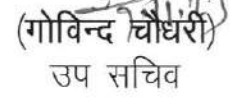 (गोविन्द चौधरी)
उप सचिव